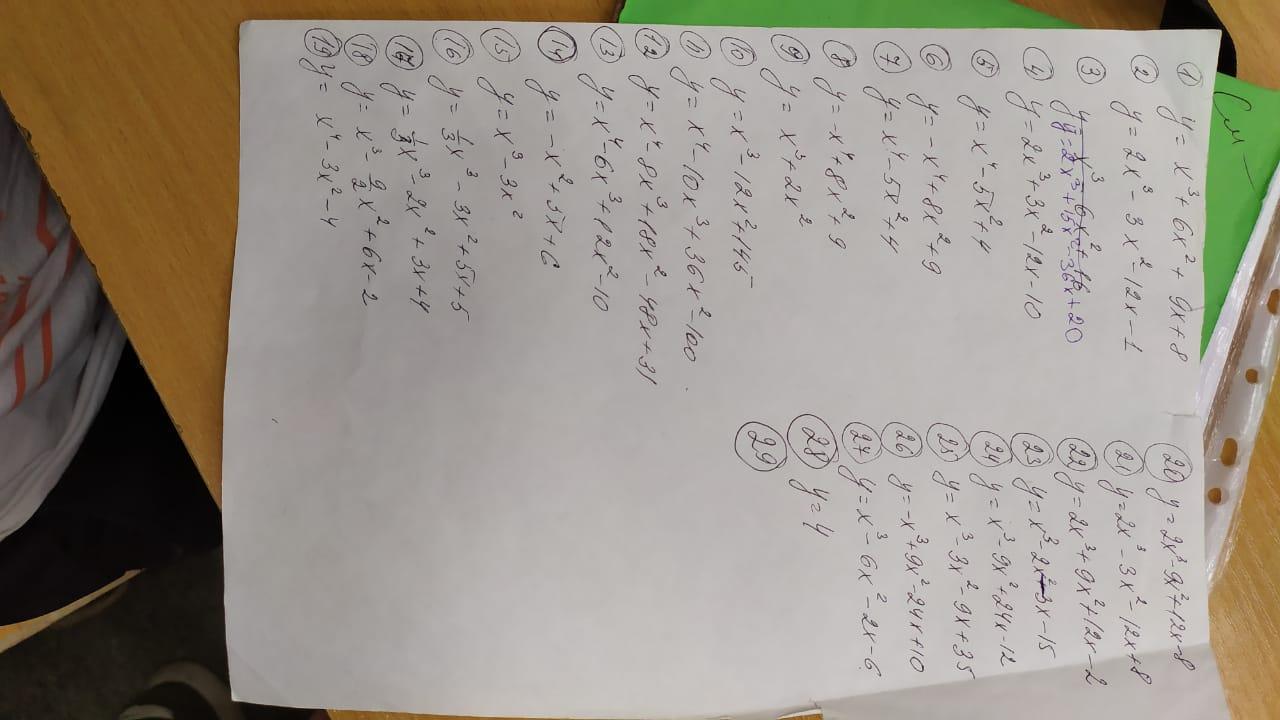 ① y = x³ + 6x² + 9x + 8
② y = 2x³ - 3x² - 12x - 1
③ y = 2x³ + 15x² - 36x + 20
④ y = 2x³ + 3x² - 12x - 10
⑤ y = x⁴ - 5x² + 4
⑥ y = -x⁴ + 8x² + 9
⑦ y = x⁴ - 5x² + 4
⑧ y = -x⁴ + 8x² + 9
⑨ y = x³ + 2x²
⑩ y = x³ - 12x² + 145
⑪ y = x⁴ - 10x³ + 36x² - 100.
⑫ y = x⁴ - 8x³ + 18x² - 48x + 31
⑬ y = x⁴ - 6x³ + 12x² - 10
⑭ y = -x² + 5x + 6
⑮ y = x³ - 3x²
⑯ y = ⅓x³ - 3x² + 5x + 5
⑰ y = ⅓x³ - 2x² + 3x + 4
⑱ y = x³ - 9/2 x² + 6x - 2
⑲ y = x⁴ - 3x² - 4
⑳ y = 2x³ - 9x² + 12x - 8
㉑ y = 2x³ - 3x² - 12x + 8
㉒ y = 2x³ + 9x² + 12x - 2
㉓ y = x³ - 2x² + 3x - 15
㉔ y = x³ - 9x² + 24x - 12
㉕ y = x³ - 3x² - 9x + 35
㉖ y = -x³ + 9x² - 24x + 10
㉗ y = x³ - 6x² - 2x - 6
㉘ y = 4
㉙